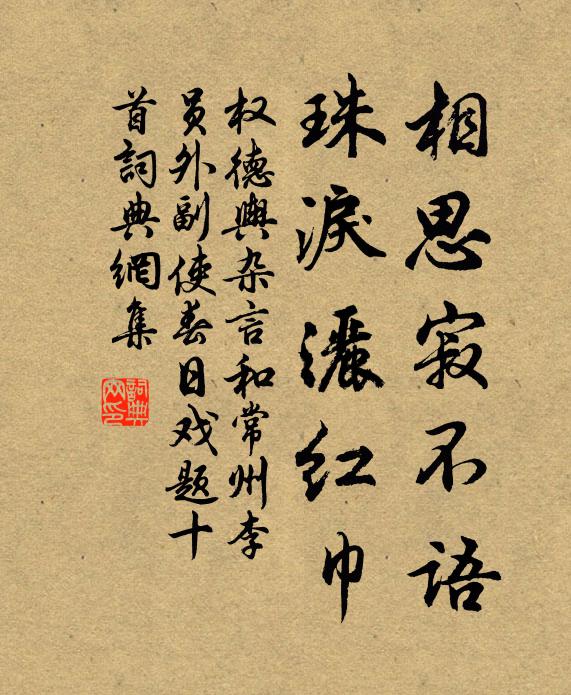 相思寂不语
珠淚灑红巾
权德輿杂言和常州李
员外副使春日戏题十
首詞典網集
詞典
网印